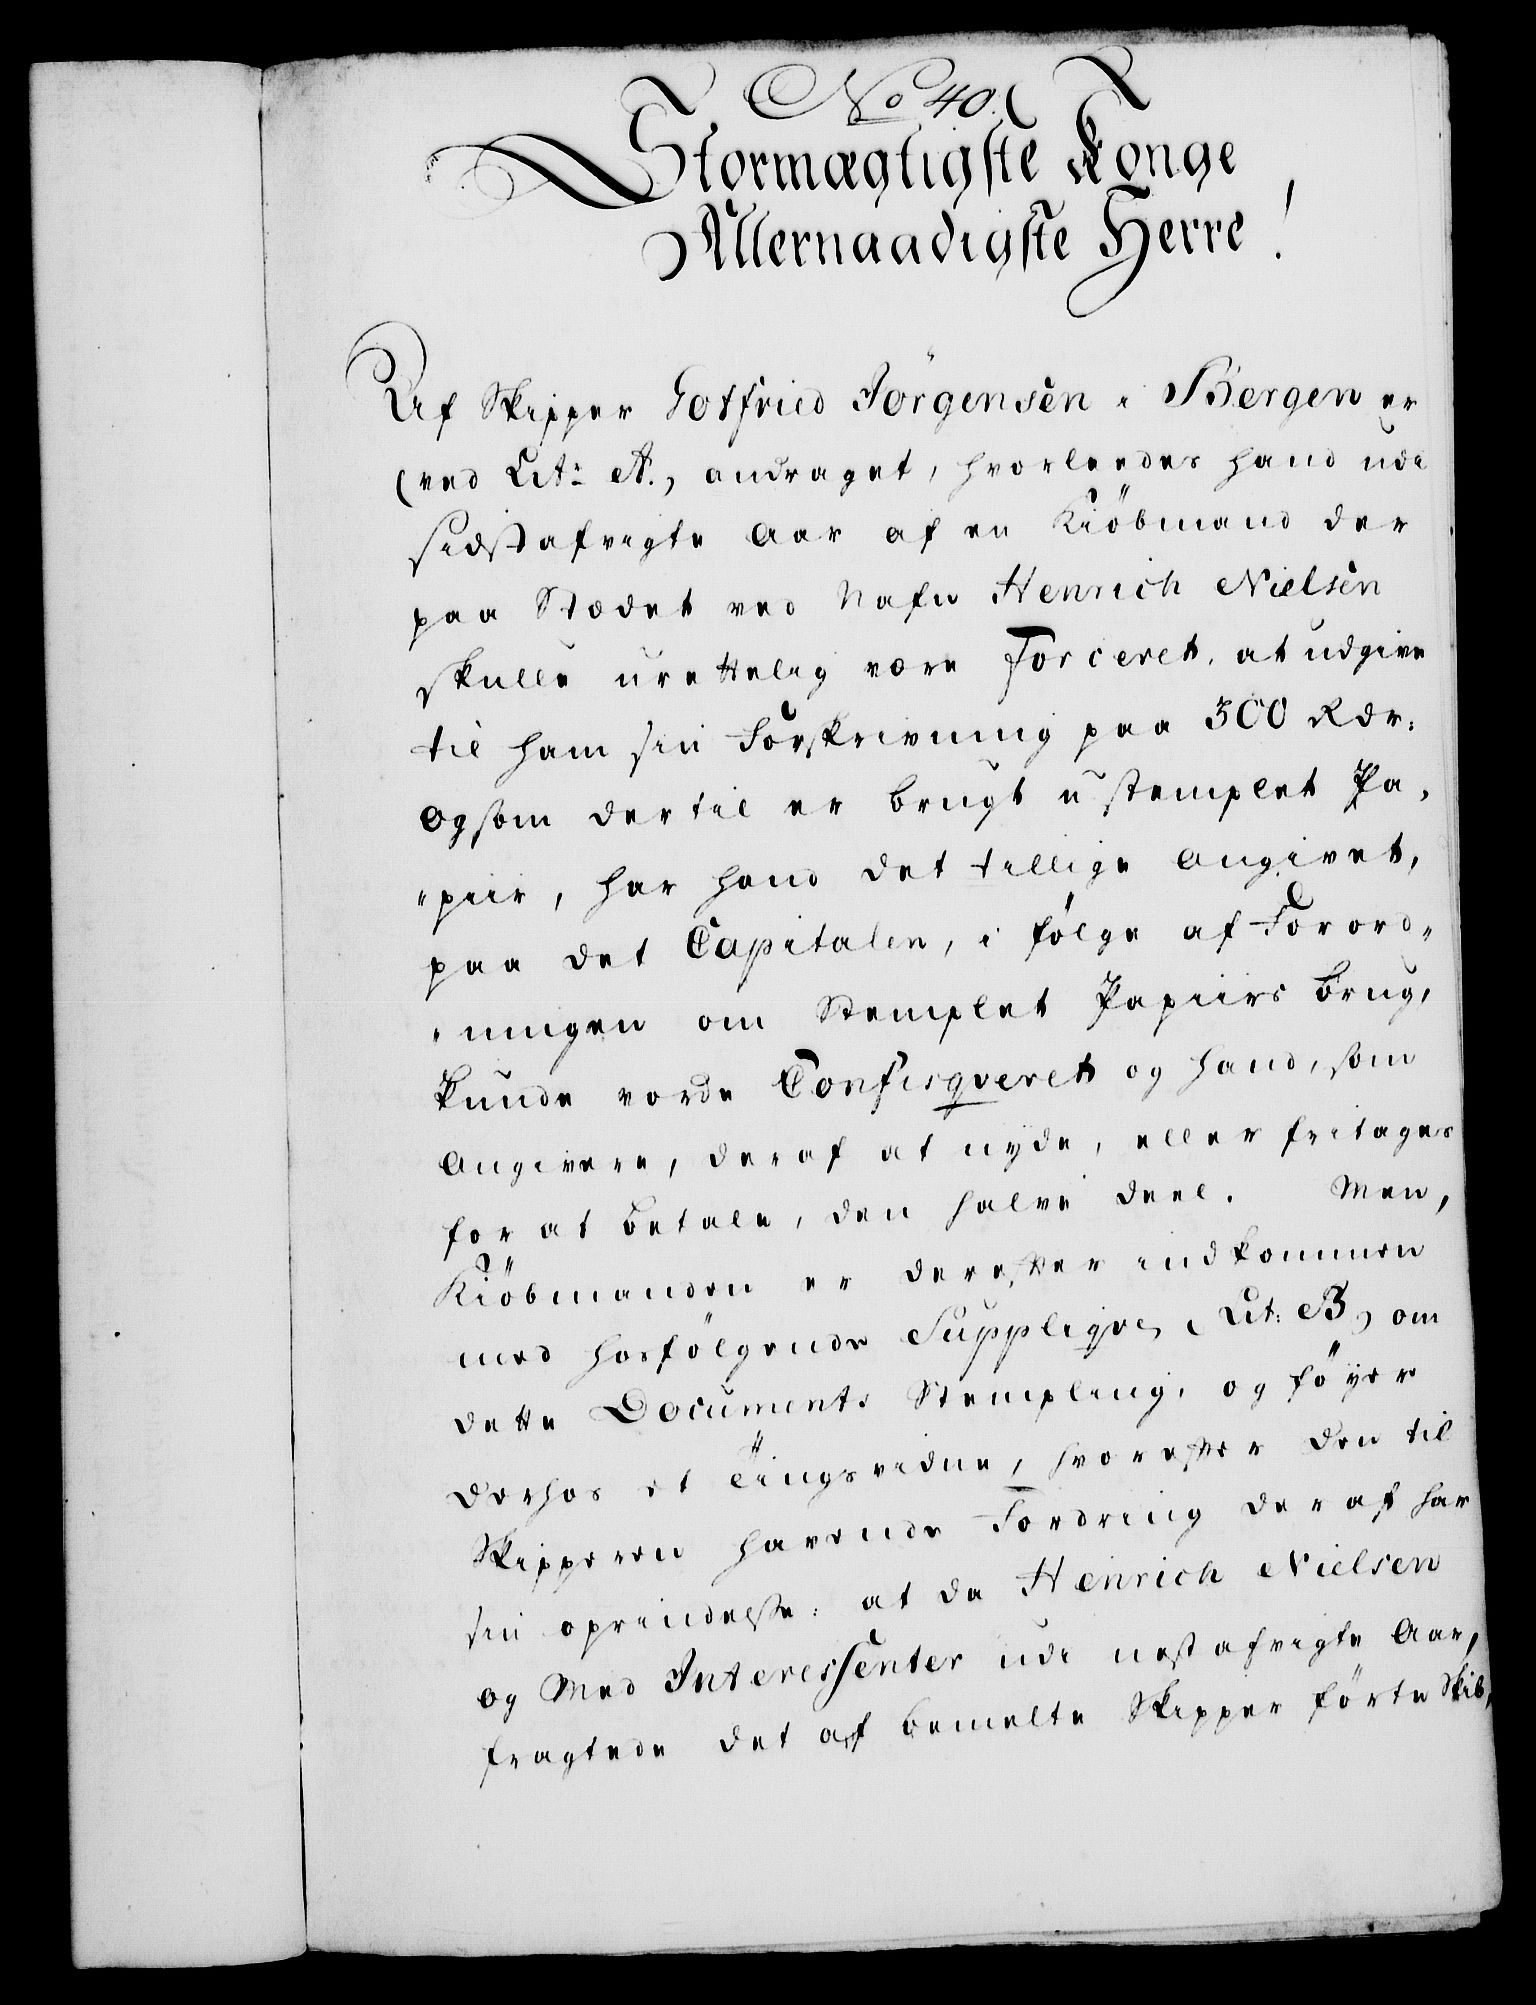 No 40.
Stormægtigste Konge
Allernaadigste Herre!
Af Skipper Gotfried Jörgensen i Bergen er
(ved Litr A.) andraget, hvorleedes hand udi
sidstafvigte Aar af en Kiöbmand der
paa Stædet ved Nafn Henrich Nielsen
skulle urettelig være Forceret, at udgive
til ham sin Forskrivning paa 300 Rdr:
og som dertil er brugt ustemplet Pa,
"piir, har hand det tillige angivet,
paa det Capitalen, i fölge af Forord„
„ningen om Stemplet Papiirs brug,
kunde vorde Confisqveret og hand, som
Angivere, deraf at nyde, eller fritages
for at betale, den halve deel. Men,
Kiöbmanden er derefter indkommen
med hosfölgende Suppliqve, (Lit: B) om
dette Documents Stempling, og föyer
derhos et Tingsvidne, hvorefter den til
Skipperen havende Fordring deraf har
sin oprindelse: at da Henrich Nielsen
og Med Interessenter udi nestafvigte Aar,
fragtede det af bemelte Skipper förte Skib,